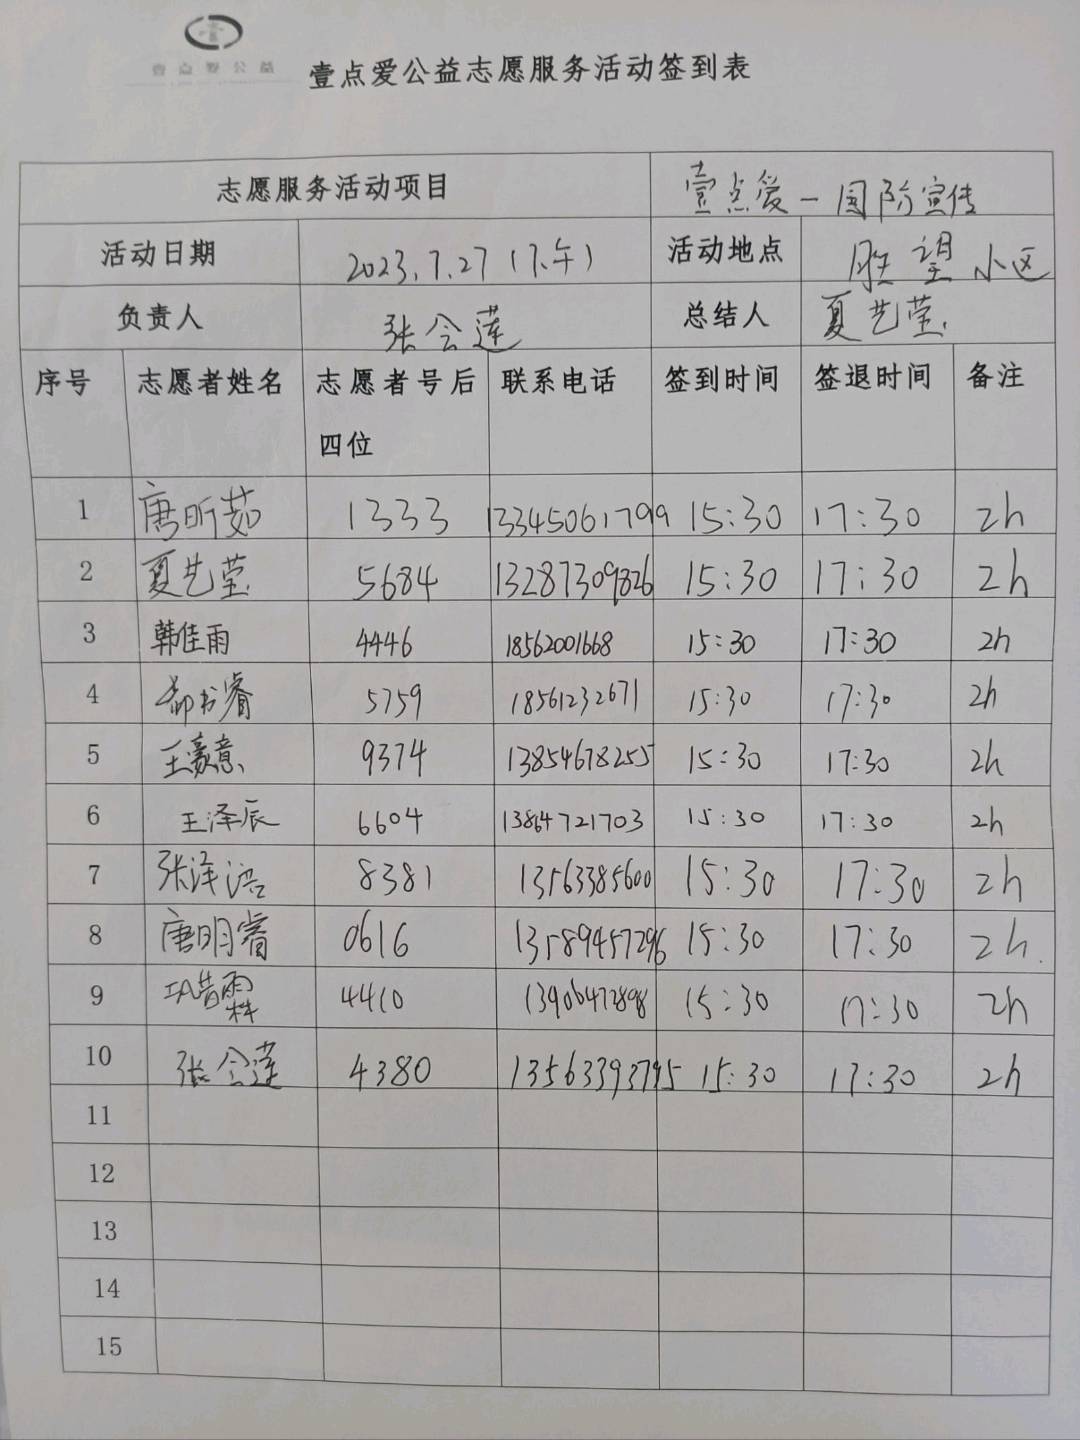 壹点爱公益
壹点爱公益志愿服务活动签到表
志愿服务活动项目 壹点爱一国防宣传
活动日期 2023.7.27(下午) 活动地点 胜望小区
负责人 张会莲 总结人 夏艺莹
序号 志愿者姓名 志愿者号后 联系电话 签到时间 签退时间 备注
四位
1 唐昕茹 1333 13345061799 15:30 17:30 2h
2 夏艺莹 5684 13287309826 15:30 17:30 2h
3 韩佳雨 4446 18562001668 15:30 17:30 2h
4 郝书睿 5759 18561232671 15:30 17:30 2h
5 王豪意 9374 13854678255 15:30 17:30 2h
6 王泽辰 6604 13864721703 15:30 17:30 2h
7 张泽浩 8381 13563385600 15:30 17:30 2h
8 唐明睿 0616 13589457296 15:30 17:30 2h
9 4410 13906472898 15:30 17:30 2h
10 张会莲 4380 13563393795 15:30 17:30 2h
11
12
13
14
15